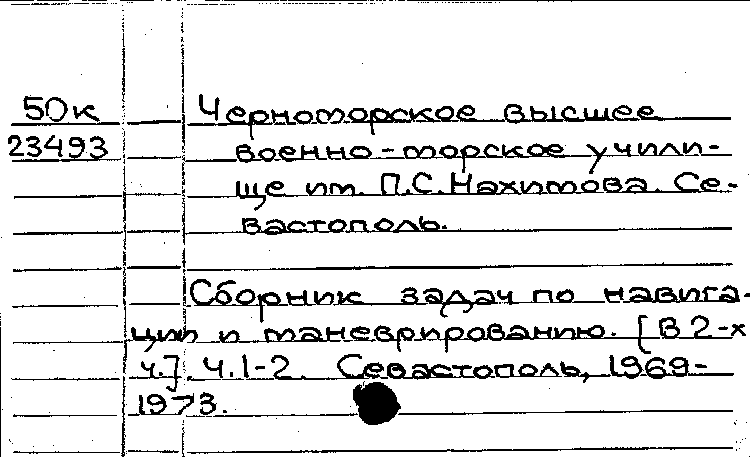 50к Черноморское высшее
23493 военно-морское учили-
ще им. П.С. Нахимова. Се-
вастополь.
Сборник задач по навига-
ции и маневрированию. [В 2-х
ч.]. Ч.1-2. Севастополь, 1969-
1973.